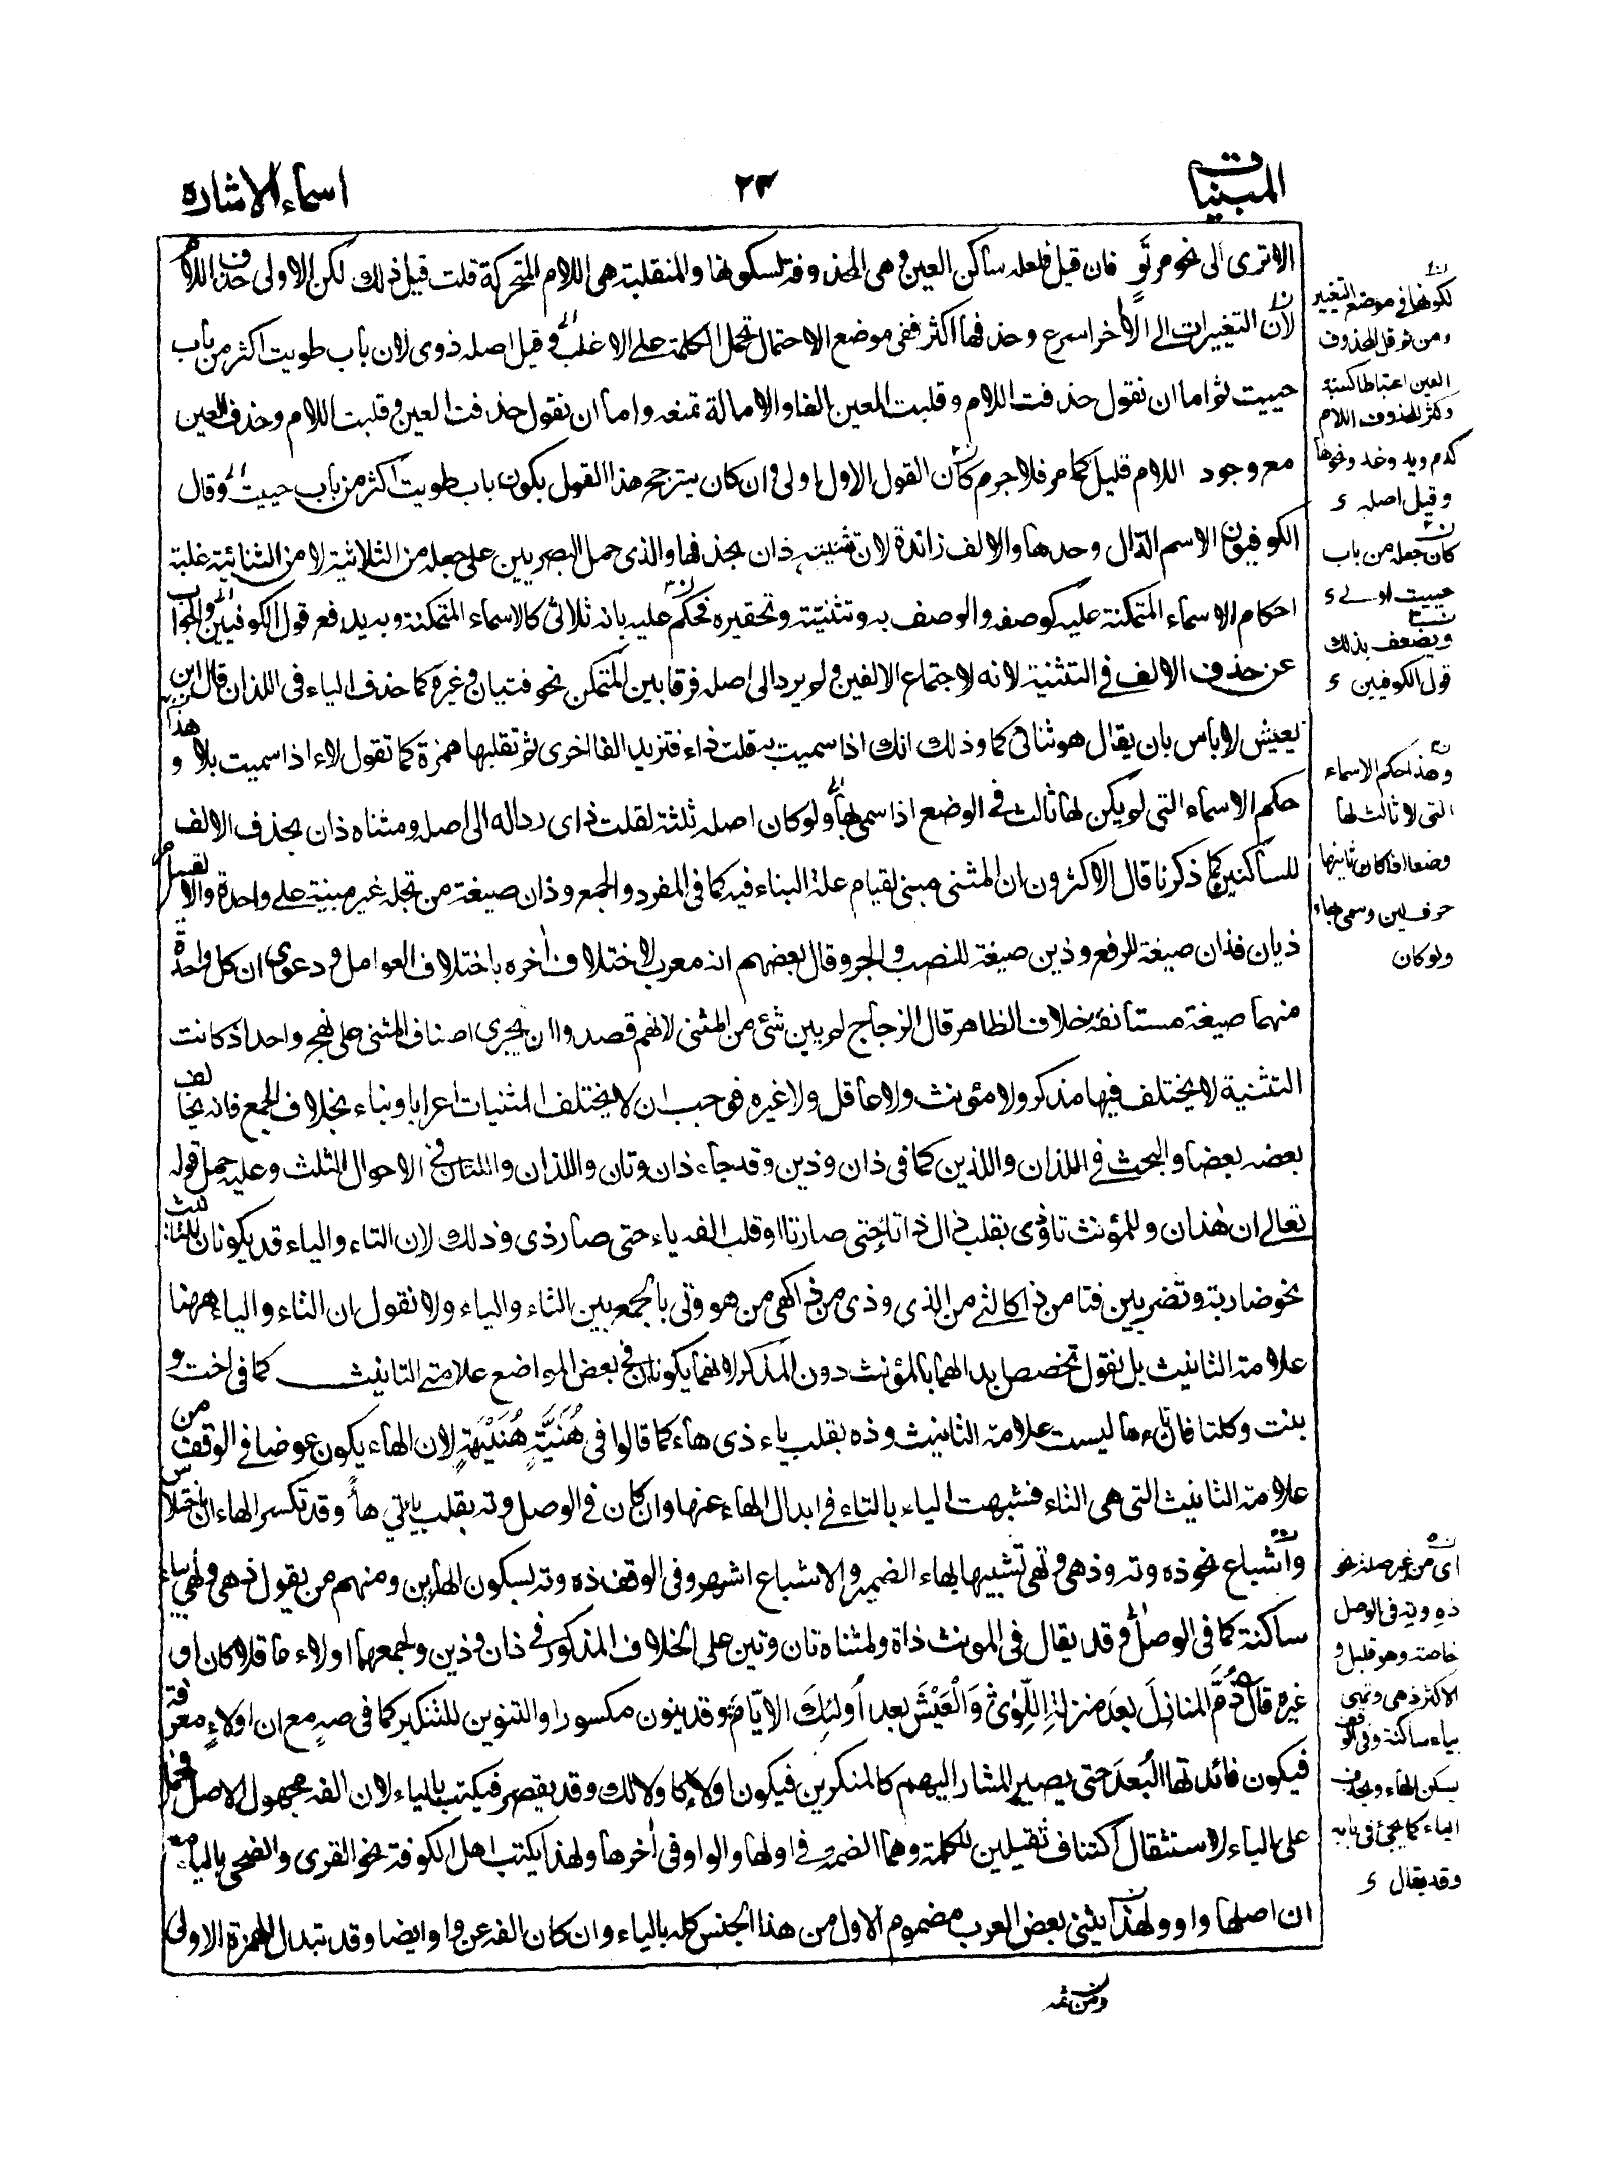 المبنيات
٢٣
اسماء الاشاره
الا ترى الى نحو مرتوٍ فان قيل فلعله ساكن العين وهى المحذوفة لسكونها والمنقلبة هى اللام المتحركة قلت قيل ذلك لكن الاولى حذف اللام
لان التغييرات الى الآخر اسرع وحذفها اكثر ففى موضع الاحتمال تحمل الكلمة على الاغلب وقيل اصله ذوى لان باب طويت اكثر من باب
حييت ثم اما ان نقول حذفت اللام وقلبت العين الفا والامالة تمنعه واما ان نقول حذفت العين وقلبت اللام وحذف العين
مع وجود اللام قليل كما مر فلا جرم كان القول الاول اولى وان كان يترجح هذا القول بكون باب طويت اكثر من باب حييت وقال
الكوفيون الاسم الذال وحدها والالف زائدة لان تثنيته ذان بحذفها والذى حمل البصريين على جعله من الثلاثية لا من الثنائية غلبة
احكام الاسماء المتمكنة عليه كوصفه والوصف به وتثنيته وتحقيره فحكم عليه بانه ثلاثى كالاسماء المتمكنة وبه يدفع قول الكوفيين والجواب
عن حذف الالف فى التثنية لانه لاجتماع الالفين ولم يرد الى اصله فرقا بين المتمكن نحو فتيان وغيره كما حذف الياء فى اللذان قال ابن
يعيش لا باس بان يقال هو ثنائى كما وذلك انك اذا سميت به قلت ذاء فتزيد الفا اخرى ثم تقلبها همزة كما تقول لاء اذا سميت بلا وهذا
حكم الاسماء التى لم يكن لها ثالث فى الوضع اذا سمى بها ولو كان اصله ثلثة لقلت ذاى ردا له الى اصله ومثناه ذان بحذف الالف
للساكنين كما ذكرنا قال الاكثرون ان المثنى مبنى لقيام علة البناء فيه كما فى المفرد والجمع وذان صيغة مرتجلة غير مبنية على واحدة والا لقيل
ذيان فذان صيغة للرفع وذين صيغة للنصب والجر وقال بعضهم انه معرب لاختلاف آخره باختلاف العوامل ودعوى ان كل واحدة
منهما صيغة مستأنفة خلاف الظاهر قال الزجاج لم يبن شئ من المثنى لانهم قصدوا ان يجرى اصناف المثنى على نهج واحد اذ كانت
التثنية لا يختلف فيها مذكر ولا مؤنث ولا عاقل ولا غيره فوجب ان لا يختلف المثنيات اعرابا وبناء بخلاف الجمع فانه يخالف
بعضه بعضا والبحث فى اللذان واللذين كما فى ذان وذين وقد جاء ذان وتان واللذان واللتان فى الاحوال الثلث وعليه حمل قوله
تعالى ان هذان وللمؤنث تا وذى بقلب ذال ذا تاء حتى صارتا او قلب الفه ياء حتى صار ذى وذلك لان التاء والياء قد يكونان للتانيث
نحو ضاربة وتضربين فتا من ذا كالتى من الذى وذى من ذا كهى من هو وتى بالجمع بين التاء والياء ولا نقول ان التاء والياء ههنا
علامة التانيث بل نقول تخصص بدالهما بالمؤنث دون المذكر لانهما يكونان فى بعض المواضع علامتى التانيث كما فى اخت و
بنت وكلتا فان تاءها ليست علامة التانيث وذه بقلب ياء ذى هاء كما قالوا فى هُنَيَّةٍ هُنَيْهَةٍ لان الهاء يكون عوضا فى الوقف من
علامة التانيث التى هى التاء فشبهت الياء بالتاء فى ابدال الهاء عنها وان كان فى الوصل وته بقلب ياء تى هاء وقد تكسر الهاء ان باختلاس
واشباع نحو ذه وته وذهى وتهى تشبيها بهاء الضمير والاشباع اشهر وفى الوقف ذه وته بسكون الهاءين ومنهم من يقول ذهى وتهى بياء
ساكنة كما فى الوصل وقد يقال فى المونث ذاة ولمثناه تان وتين على الخلاف المذكور فى ذان وذين ولجمعهما اولاء عاقلا كان او
غيره قال ذُمَّ المنازِلَ بعدَ منزلةِ اللِّوى وَالْعَيْشَ بعد اُولئِكَ الايّامِ وقد ينون مكسورا والتنوين للتنكير كما فى صهٍ مع ان اولاءٍ معرفة
فيكون فائدتها البُعدَ حتى يصير المشار اليهم كالمنكرين فيكون اولاءٍ كاولالك وقد يقصر فيكتب بالياء لان الفه مجهول الاصل فحمل
على الياء لاستثقال اكتناف ثقيلين للكلمة وهما الضمة فى اولها والواو فى آخرها ولهذا يكتب اهل الكوفة نحو القرى والضحى بالياء مع
ان اصلها واو ولهذا يثنى بعض العرب مضموم الاول من هذا الجنس كله بالياء وان كان الفه عن واو ايضا وقد تبدل الهمزة الاولى
لكونها فى موضع التغيير
ومن ثم قل المحذوف
العين اعتباطا كسته
وكثر المحذوف اللام
كدم ويد وغد ونحوها
وقيل اصله
كان جعله من باب
حييت اولى
ويضعف بذلك
قول الكوفيين
وهذا حكم الاسماء
التى لا ثالث لها
وضعا اذا كان ثانيها
حرف لين وسمى بها
ولو كان
اى من غير صلة نحو
ذه وته فى الوصل
خاصة وهو قليل و
الاكثر ذهى وتهى
بياء ساكنة وفى الوقف
يسكن الهاء ويحذف
الياء كما يجئ فى بابه
وقد يقال
ومن ثمه